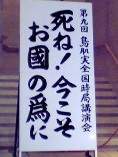 第九回 鳥肌実全国時局講演会
死ね!今こそ
お國の為に